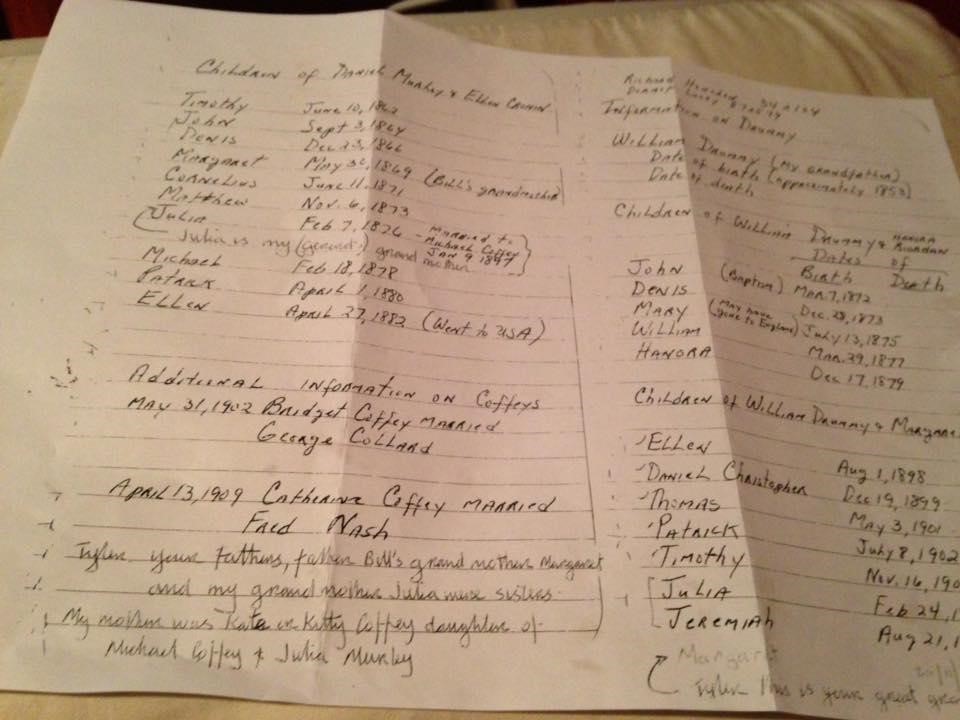 Children of Daniel Murley & Ellen Cronin
Timothy June 10, 1862
John Sept 3, 1864
Denis Dec 23, 1866
Margaret May 30, 1869 (Bill's grandmother)
Cornelius June 11, 1871
Matthew Nov. 6, 1873
Julia Feb 7, 1876 - Married to Michael Coffey Jan 9 1897
Julia is my (grand) grand mother
Michael Feb 18, 1878
Patrick April 1, 1880
Ellen April 27, 1882 (Went to USA)
Additional information on Coffeys
May 31, 1902 Bridget Coffey married
George Collard
April 13, 1909 Catherine Coffey married
Fred Nash
Tyler your fathers, father Bill's grand mother Margaret
and my grand mother Julia were sisters.
My mother was Kate or Kitty Coffey daughter of
Michael Coffey & Julia Murley
Richard
Information on Drummy
William Drummy (My grandfather)
Date of birth (approximately 1853)
Date of death
Children of William Drummy & Hanora Riordan
Dates of
Birth Death
John (Baptism) Mar. 7, 1872
Denis Dec. 28, 1873
Mary (May have gone to England) July 13, 1875
William Mar. 29, 1877
Hanora Dec 17, 1879
Children of William Drummy & Margaret
Ellen Aug 1, 1898
Daniel Christopher Dec 19, 1899
Thomas May 3, 1901
Patrick July 8, 1902
Timothy Nov. 16, 190
Julia Feb 24, 1
Jeremiah Aug 21, 1
Margaret
Tyler this is your great gra